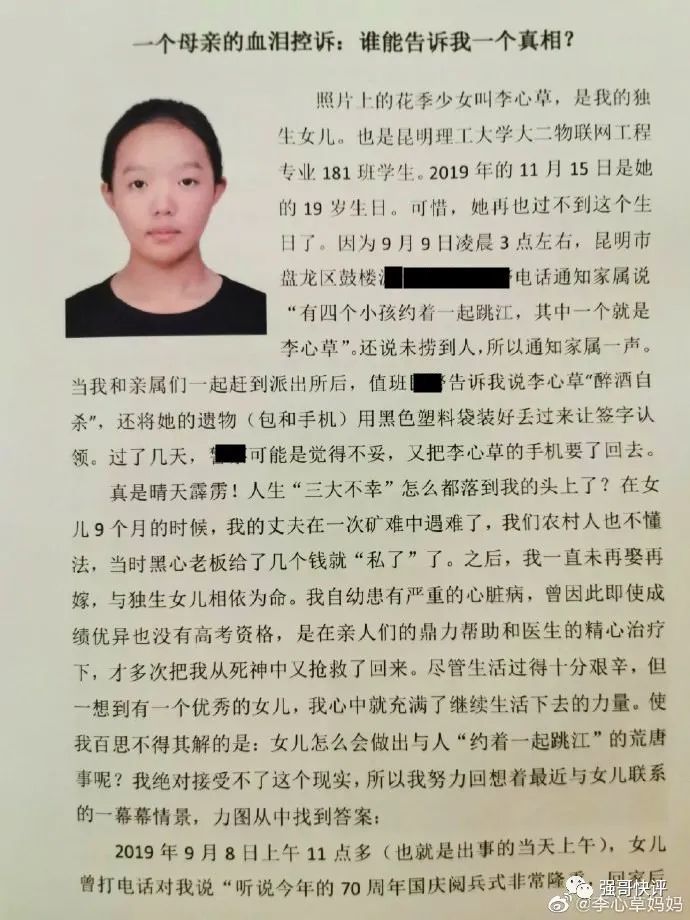 一个母亲的血泪控诉：谁能告诉我一个真相？
照片上的花季少女叫李心草，是我的独
生女儿。也是昆明理工大学大二物联网工程
专业 181 班学生。2019 年的 11 月 15 日是她
的 19 岁生日。可惜，她再也过不到这个生
日了。因为 9 月 9 日凌晨 3 点左右，昆明市
盘龙区鼓楼 电话通知家属说
“有四个小孩约着一起跳江，其中一个就是
李心草”。还说未捞到人，所以通知家属一声。
当我和亲属们一起赶到派出所后，值班 告诉我说李心草“醉酒自
杀”，还将她的遗物（包和手机）用黑色塑料袋装好丢过来让签字认
领。过了几天， 可能是觉得不妥，又把李心草的手机要了回去。
真是晴天霹雳！人生“三大不幸”怎么都落到我的头上了？在女
儿 9 个月的时候，我的丈夫在一次矿难中遇难了，我们农村人也不懂
法，当时黑心老板给了几个钱就“私了”了。之后，我一直未再娶再
嫁，与独生女儿相依为命。我自幼患有严重的心脏病，曾因此即使成
绩优异也没有高考资格，是在亲人们的鼎力帮助和医生的精心治疗
下，才多次把我从死神中又抢救了回来。尽管生活过得十分艰辛，但
一想到有一个优秀的女儿，我心中就充满了继续生活下去的力量。使
我百思不得其解的是：女儿怎么会做出与人“约着一起跳江”的荒唐
事呢？我绝对接受不了这个现实，所以我努力回想着最近与女儿联系
的一幕幕情景，力图从中找到答案：
2019 年 9 月 8 日上午 11 点多（也就是出事的当天上午），女儿
曾打电话对我说“听说今年的 70 周年国庆阅兵式非常隆重，回家后
强哥快评
@李心草妈妈